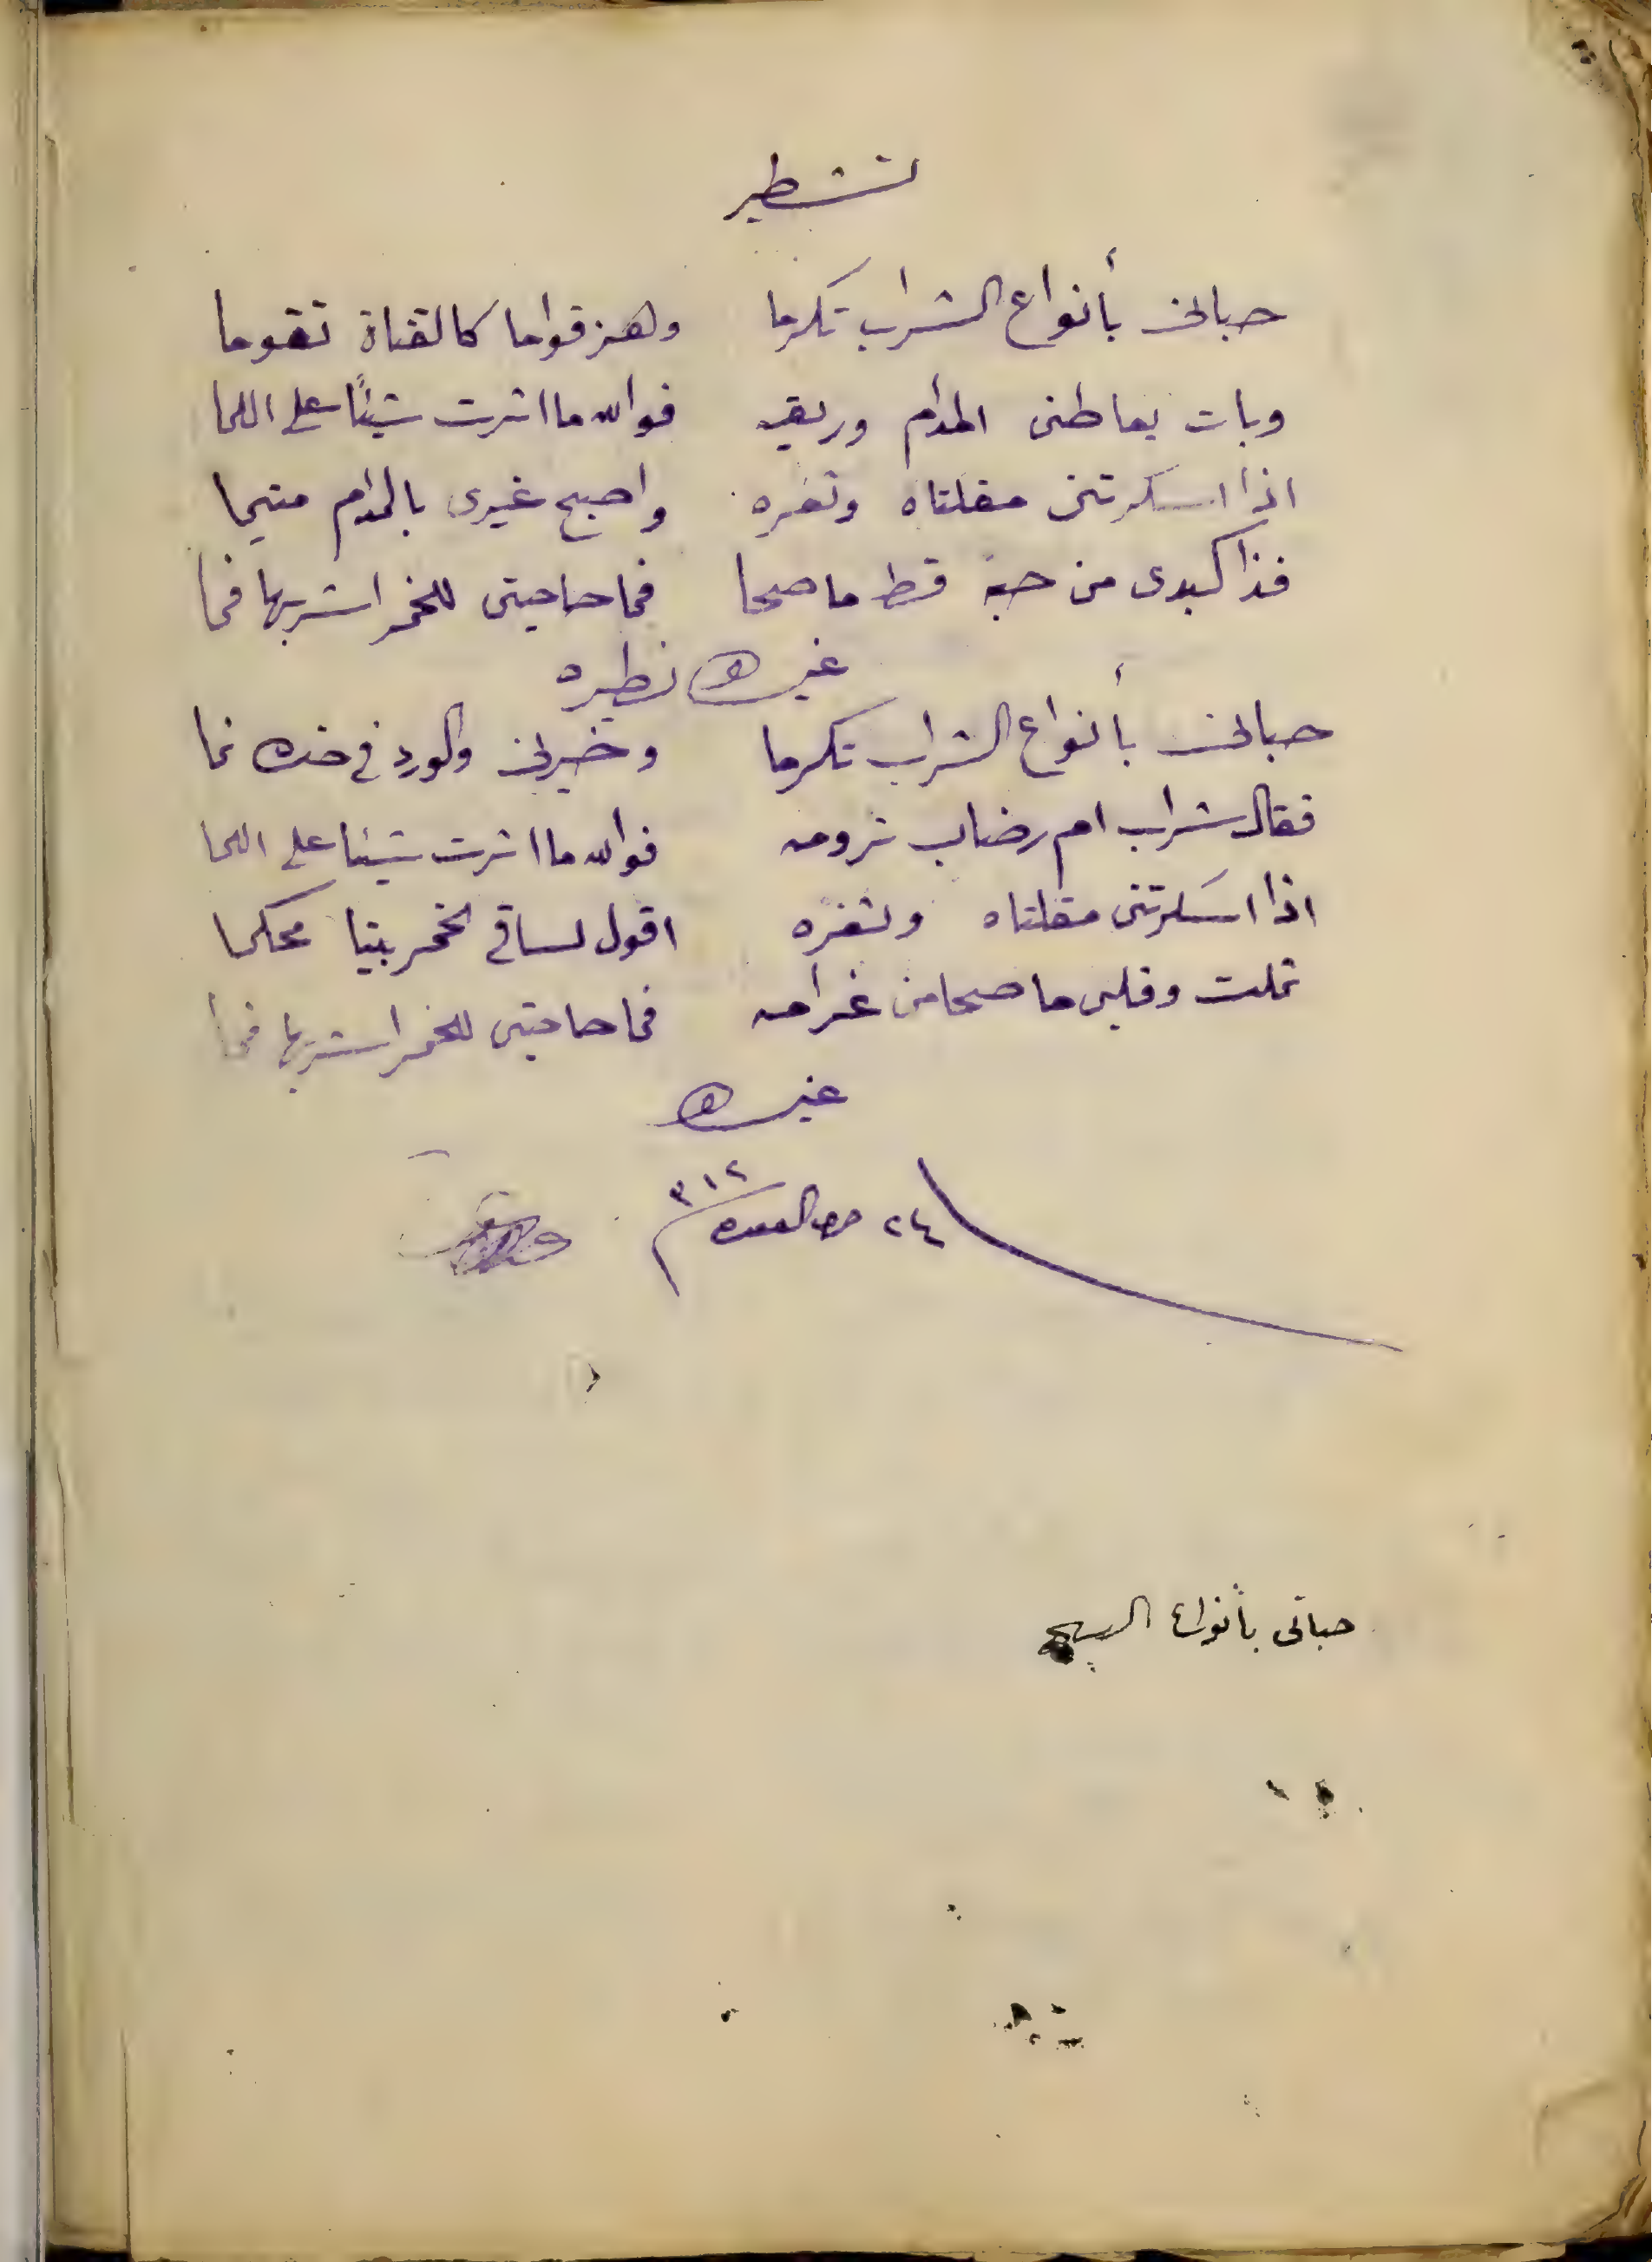 تشطير
حبانى بأنواع الشراب تكرما وهز قواما كالقناة تقوما
وبات يعاطنى المدام وريقه فوالله ما اثرت شيئًا على اللما
اذا اسكرتنى مقلتاه وثغره واصبح غيرى بالمدام متيما
فذا كبدى من حبه قط ما صحا فما حاجتى للخمر اشربها فما
غيره نظيره
حبانى بأنواع الشراب تكرما وخيرنى والورد فى خده نما
فقال شراب ام رضاب ترومه فوالله ما اثرت شيئا على اللما
اذا اسكرتنى مقلتاه وثغره اقول لساقى الخمر بيتا محكما
ثملت وقلبى ما صحا من غرامه فما حاجتى للخمر اشربها فما
غيره
٢٤ القعده ٣١٢
حبانى بأنواع